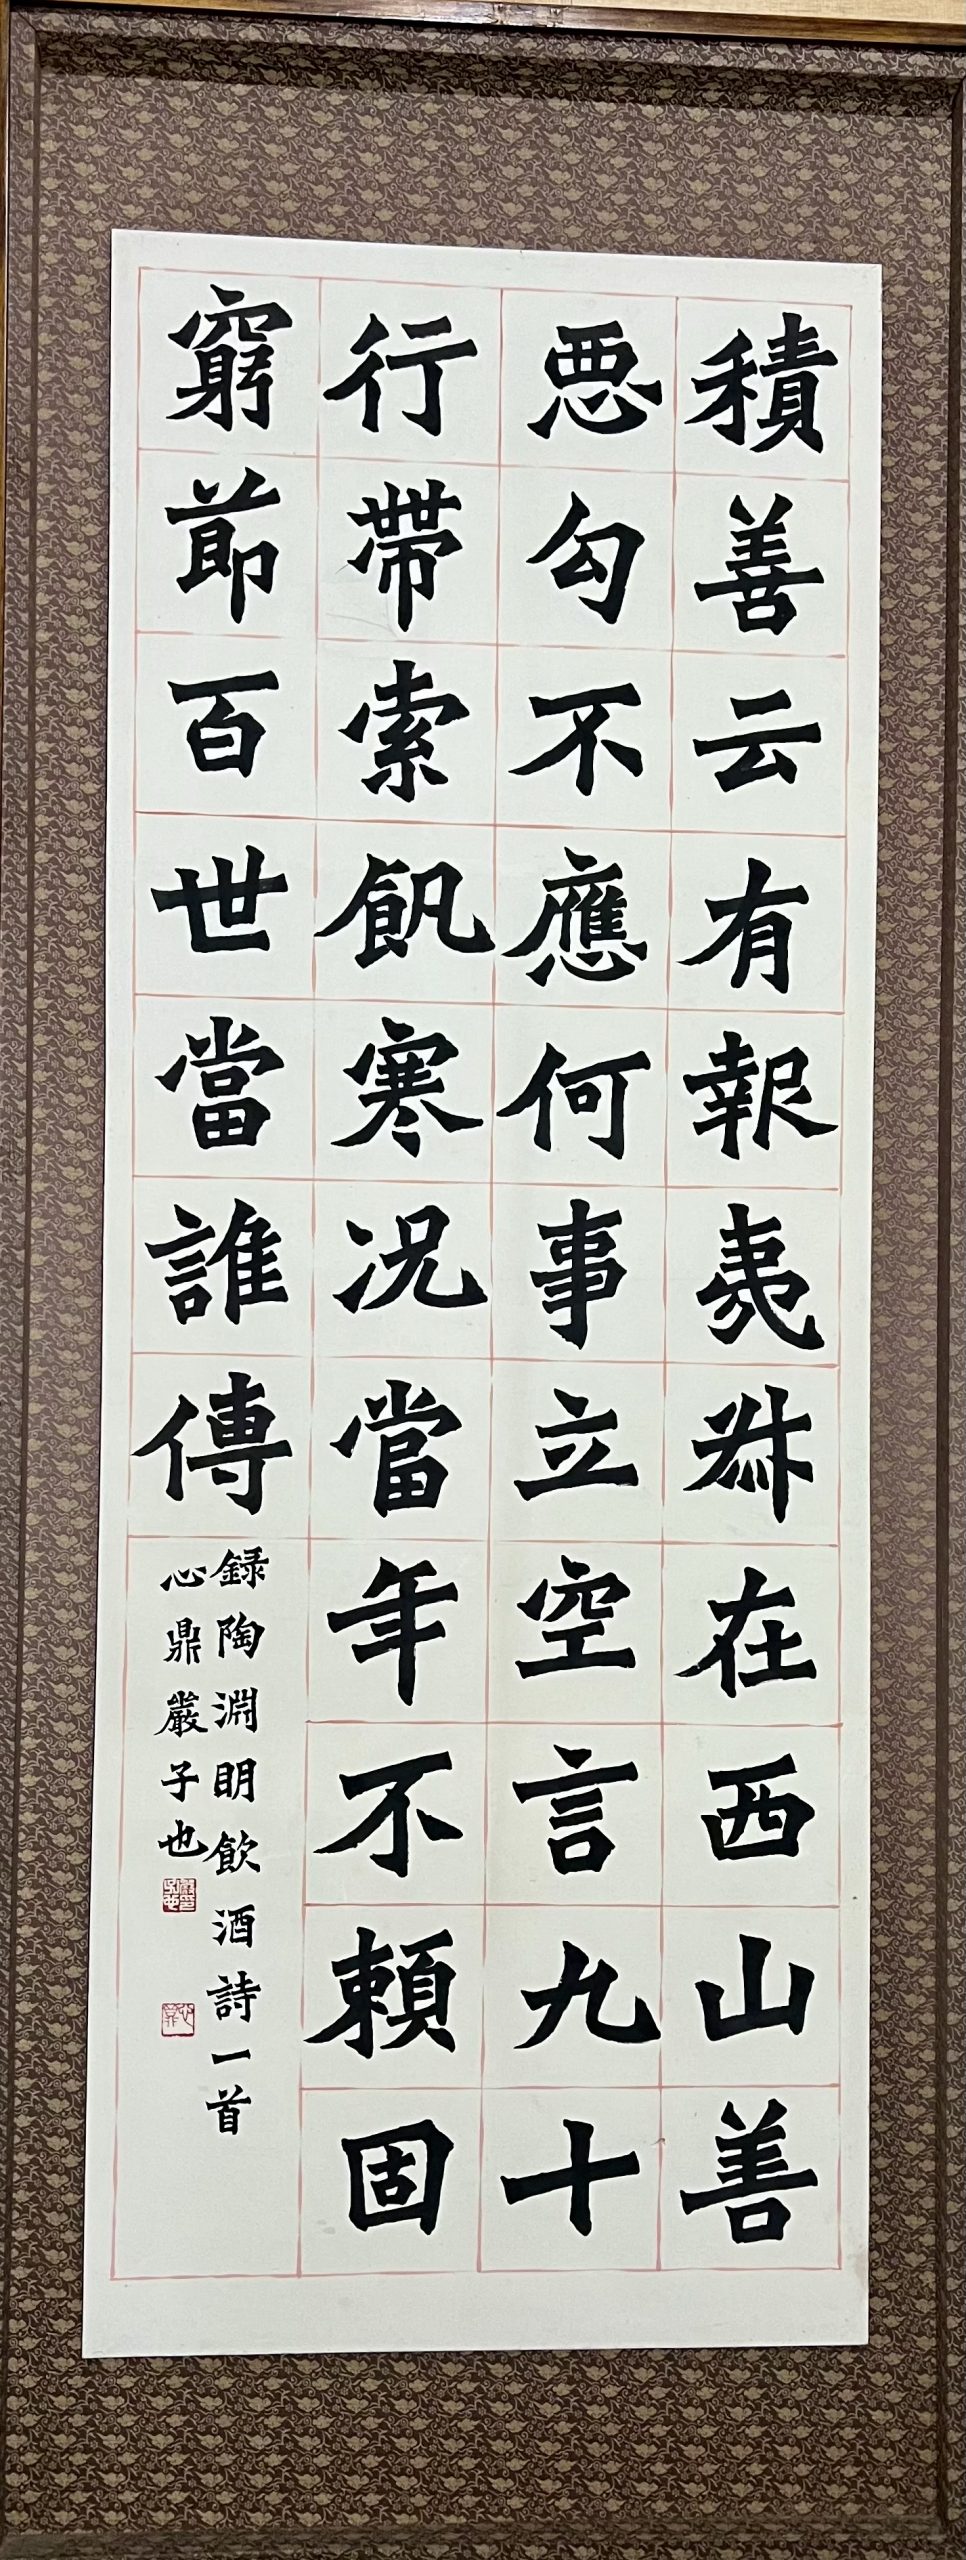 積善云有報夷叔在西山善
惡勾不應何事立空言九十
行帶索飢寒況當年不賴固
窮節百世當誰傳
録陶淵明飲酒詩一首
心鼎嚴子也